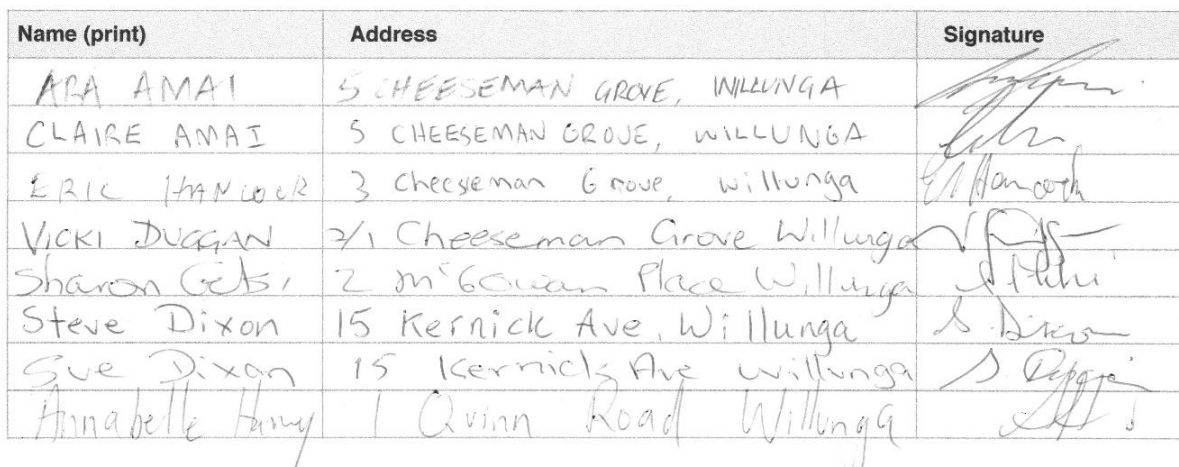 Name (print) Address Signature
ARA AMAI 5 CHEESEMAN GROVE, WILLUNGA
CLAIRE AMAI 5 CHEESEMAN GROVE, WILLUNGA
ERIC HANCOCK 3 Cheeseman Grove, willunga E Hancock
VICKI DUGGAN 2/1 Cheeseman Grove Willunga
Sharon 2 McGowan Place Willunga
Steve Dixon 15 Kernick Ave, Willunga S. Dixon
Sue Dixon 15 Kernick Ave willunga S
Annabelle 1 Quinn Road Willunga